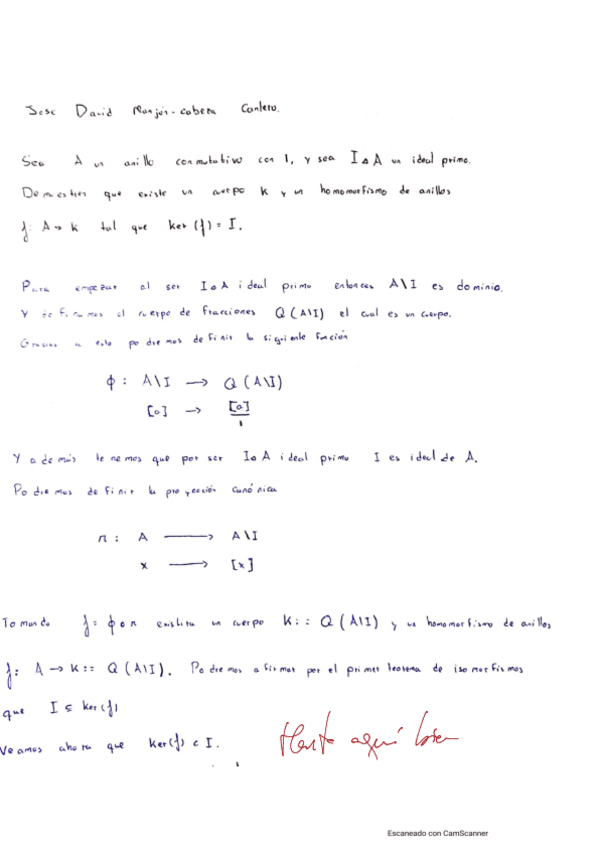 Jose David Monjón-cabeza Cantero.
Sea A un anillo conmutativo con 1, y sea I⊲A un ideal primo.
Demuestres que existe un cuerpo K y un homomorfismo de anillos
f: A→K tal que ker(f)=I.
Para empezar al ser I⊲A ideal primo entonces A\I es dominio.
Y definimos el cuerpo de fracciones Q(A\I) el cual es un cuerpo.
Gracias a esto podremos definir la siguiente función
ϕ: A\I → Q(A\I)
[a] → [a]/1
Y además tenemos que por ser I⊲A ideal primo I es ideal de A.
Podremos definir la proyección canónica
π: A → A\I
x → [x]
Tomando f=ϕ∘π existira un cuerpo K:: Q(A\I) y un homomorfismo de anillos
f: A→K:: Q(A\I). Podremos afirmar por el primer teorema de isomorfismos
que I⊆ker(f)
Veamos ahora que ker(f)⊂I. Hasta aquí bien
Escaneado con CamScanner